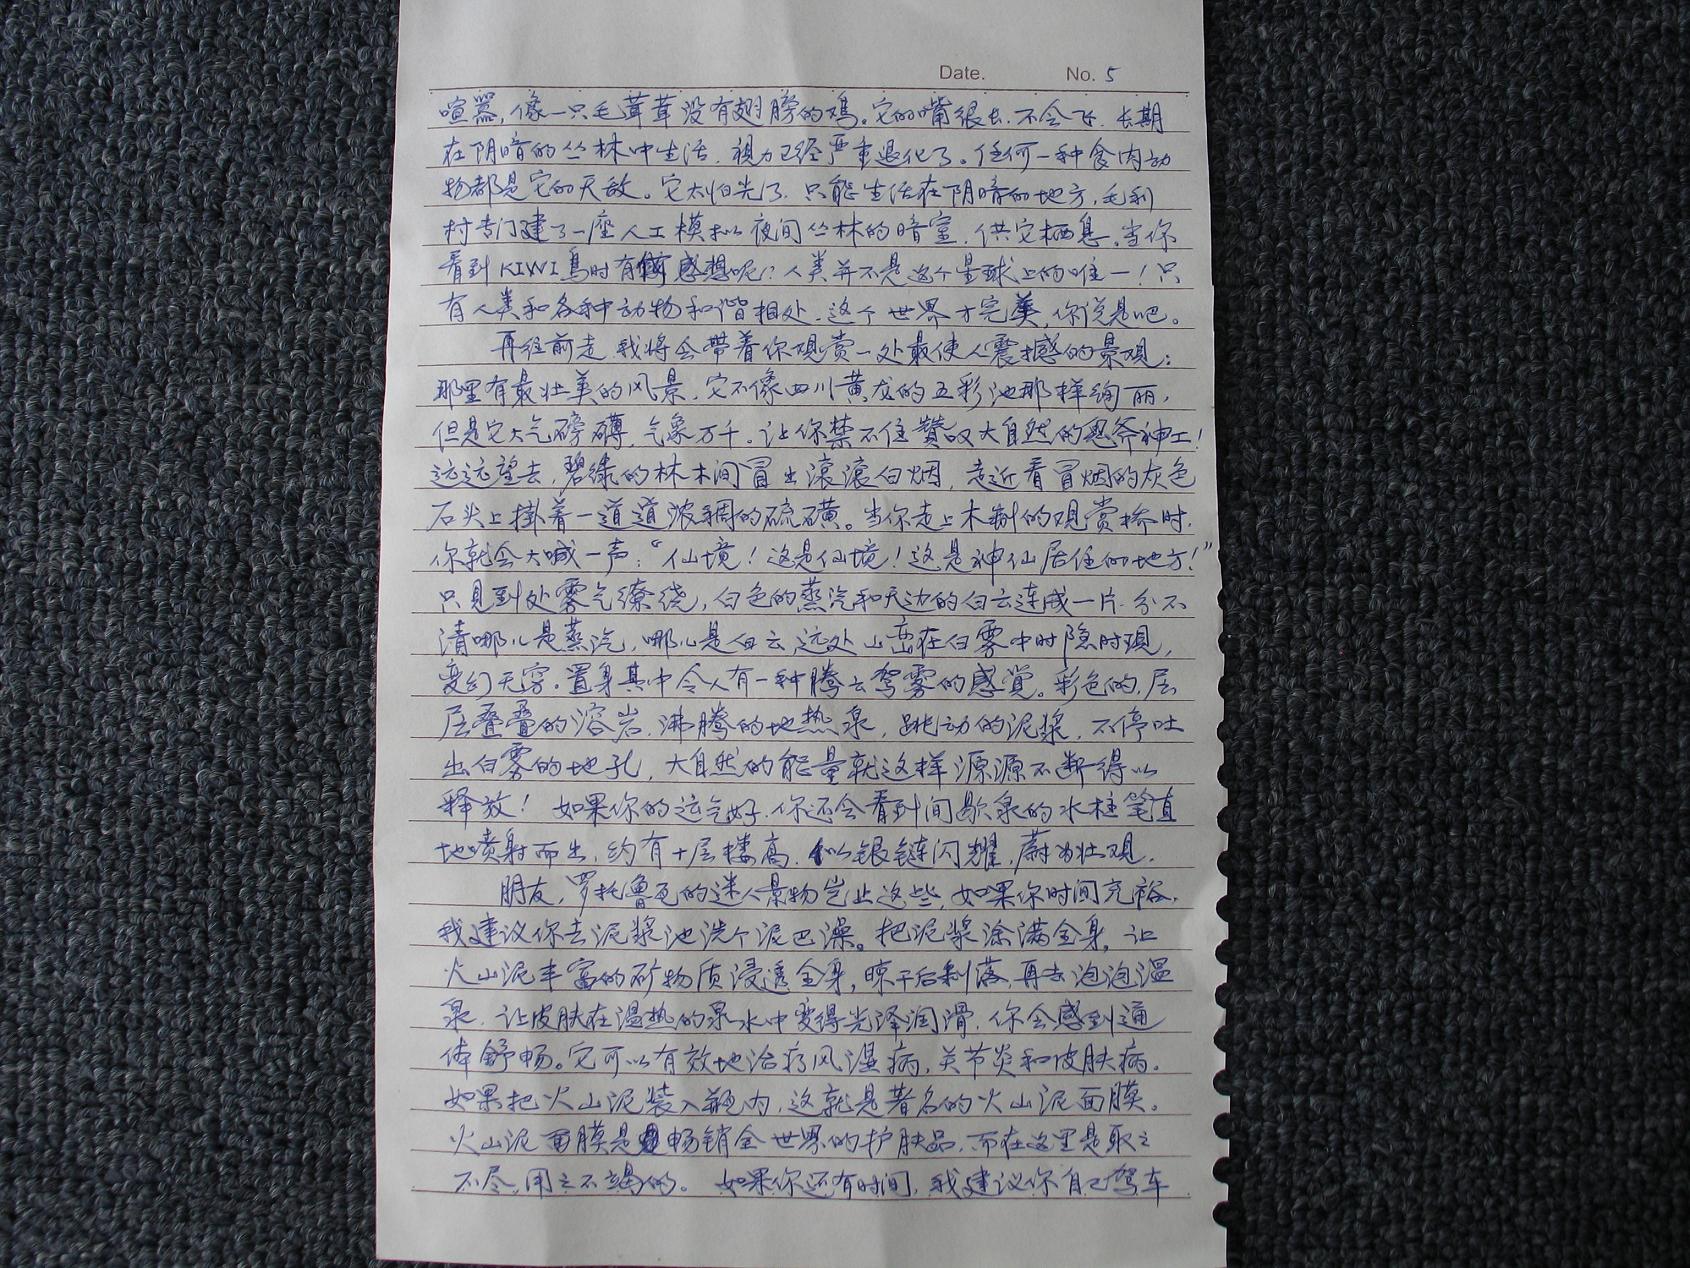 Date. No. 5
喧嚣,像一只毛茸茸没有翅膀的鸡。它的嘴很长.不会飞.长期
在阴暗的丛林中生活,视力已经严重退化了。任何一种食肉动
物都是它的天敌。它太怕光了,只能生活在阴暗的地方,毛利
村专门建了一座人工模拟夜间丛林的暗室,供它栖息,当你
看到KIWI鸟时有何感想呢?人类并不是这个星球上的唯一!只
有人类和各种动物和谐相处,这个世界才完美,你说是吧。
再往前走,我将会带着你观赏一处最使人震撼的景观:
那里有最壮美的风景,它不像四川黄龙的五彩池那样绚丽,
但是它大气磅礴,气象万千。让你禁不住赞叹大自然的鬼斧神工!
远远望去,碧绿的林木间冒出滚滚白烟,走近看冒烟的灰色
石头上掛着一道道浓稠的硫磺。当你走上木制的观赏桥时,
你就会大喊一声:“仙境!这是仙境!这是神仙居住的地方!”
只见到处雾气缭绕,白色的蒸汽和天边的白云连成一片.分不
清哪儿是蒸汽,哪儿是白云,远处山峦在白雾中时隐时现,
变幻无穷.置身其中令人有一种腾云驾雾的感觉。彩色的,层
层叠叠的溶岩,沸腾的地热泉,跳动的泥浆,不停吐
出白雾的地孔,大自然的能量就这样源源不断得以
释放!如果你的运气好,你还会看到间歇泉的水柱笔直
地喷射而出,约有十层楼高,似银链闪耀,蔚为壮观.
朋友,罗托鲁瓦的迷人景物岂止这些,如果你时间充裕,
我建议你去泥浆池洗个泥巴澡。把泥浆涂满全身,让
火山泥丰富的矿物质浸透全身,晾干后剥落,再去泡泡温
泉,让皮肤在温热的泉水中变得光泽润滑,你会感到通
体舒畅。它可以有效地治疗风湿病,关节炎和皮肤病.
如果把火山泥装入瓶内,这就是著名的火山泥面膜。
火山泥面膜是畅销全世界的护肤品,而在这里是取之
不尽,用之不竭的。如果你还有时间,我建议你自己驾车